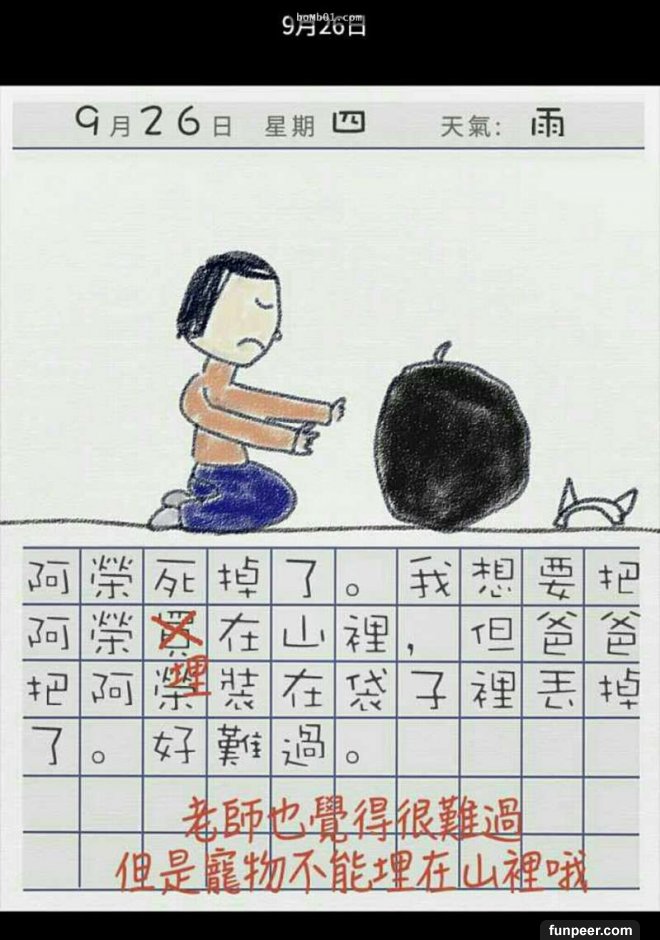 bomb01.com
9月26日
9月26日 星期四 天氣: 雨
阿榮死掉了。我想要把
阿榮買在山裡,但爸爸
埋
把阿榮裝在袋子裡丟掉
了。好難過。
老師也覺得很難過
但是寵物不能埋在山裡哦
funpeer.com